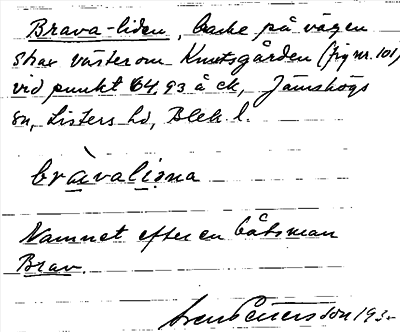 Brava-liden, backe på vägen
strax väster om Knutsgården (frg nr. 101)
vid punkt 64,93 å ek, Jämshögs
sn, Listers hd, Blek. l.
bràvaliɔna
Namnet efter en båtsman
Brav.
Sven Petersson 193-